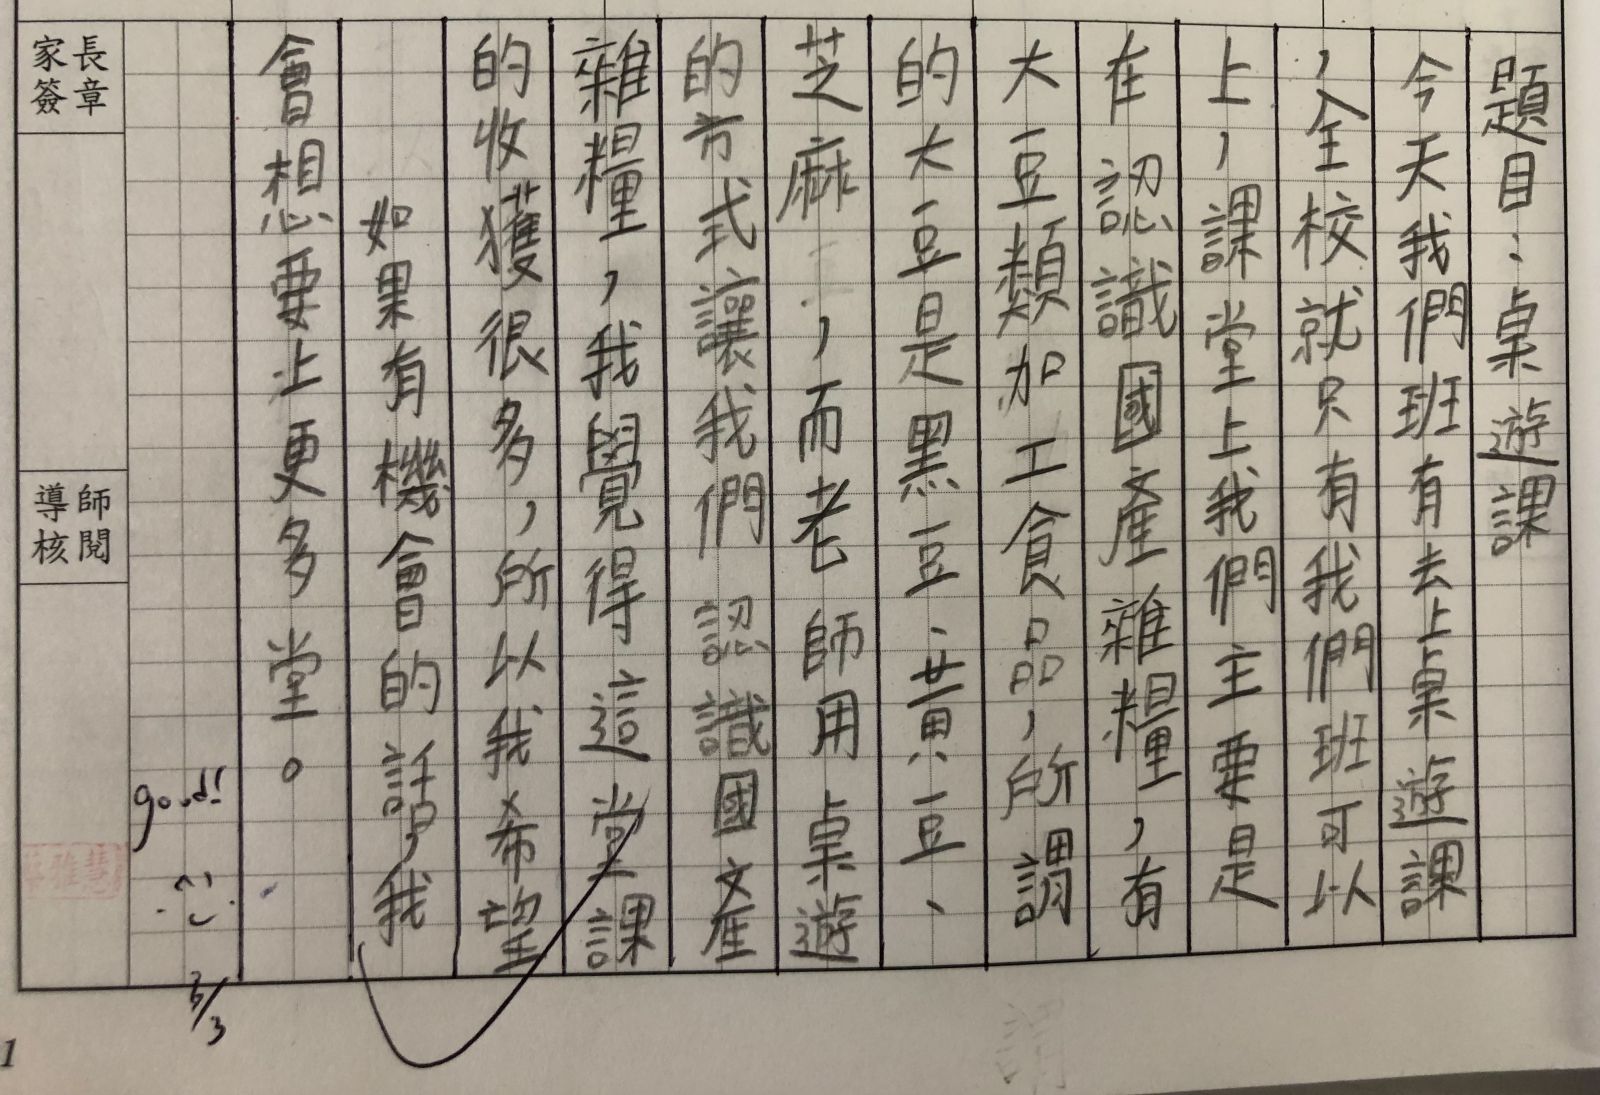 題目：桌遊課
今天我們班有去上桌遊課
，全校就只有我們班可以
上，課堂上我們主要是
在認識國產雜糧，有
大豆類加工食品，所謂
的大豆是黑豆、黃豆、
芝麻，而老師用桌遊
的方式讓我們認識國產
雜糧，我覺得這堂課
的收獲很多，所以我希望
如果有機會的話，我
會想要上更多堂。
good!
3/3
家長簽章
導師核閱
1